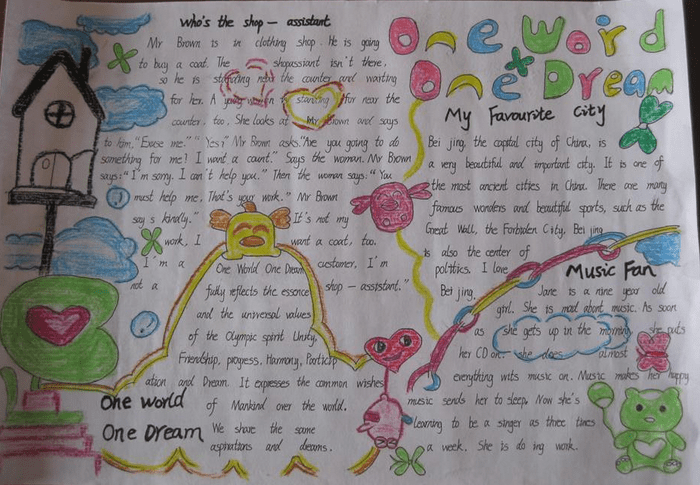 Who's the shop - assistant
Mr Brown is in clothing shop. He is going
to buy a coat. The shopassiant isn't there,
so he is standing near the counter and waiting
for her. A young woman is standing for near the
counter, too. She looks at Mr Brown and says
to him, "Excuse me." "Yes?" Mr Brown asks. "Are you going to do
something for me? I want a count." Says the woman. Mr Brown
says: "I'm sorry. I can't help you." Then the woman says: "You
must help me. That's your work." Mr Brown
say s kindly." It's not my
work, I want a coat, too.
I'm a customer, I'm
not a shop - assistant."
One World One Dream
fully reflects the essence
and the universal values
of the Olympic spirit Unity,
Friendship, progess, Harmony, Particip
ation and Dream. It expresses the common wishes
of Mankind over the world.
We share the same
aspirations and dreams.
One World
One Dream
One Word
One Dream
My Favourite City
Bei jing, the capital city of China, is
a very beautiful and important city. It is one of
the most ancient cities in China. There are many
famous wonders and beautiful sports, such as the
Great Wall, the Forbiden City, Bei jing
is also the center of
politics. I love
Bei jing.
Music Fan
Jane is a nine year old
girl. She is mad about music. As soon
as she gets up in the morning, she puts
her CD on. she does almost
everything wits music on. Music makes her happy
music sends her to sleep. Now she's
learning to be a singer as three times
a week. She is do ing work.